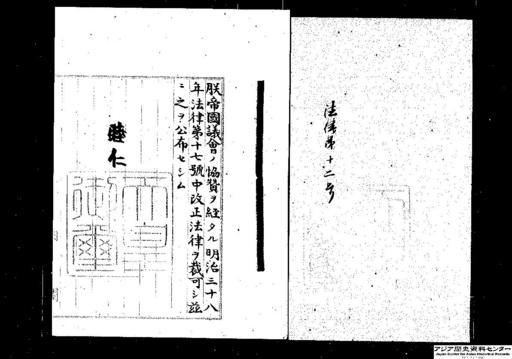 法律第十二号
朕帝國議會ノ協贊ヲ經タル明治三十八
年法律第十七號中改正法律ヲ裁可シ茲
ニ之ヲ公布セシム
睦仁
天皇
御璽
アジア歴史資料センター
Japan Center for Asian Historical Records